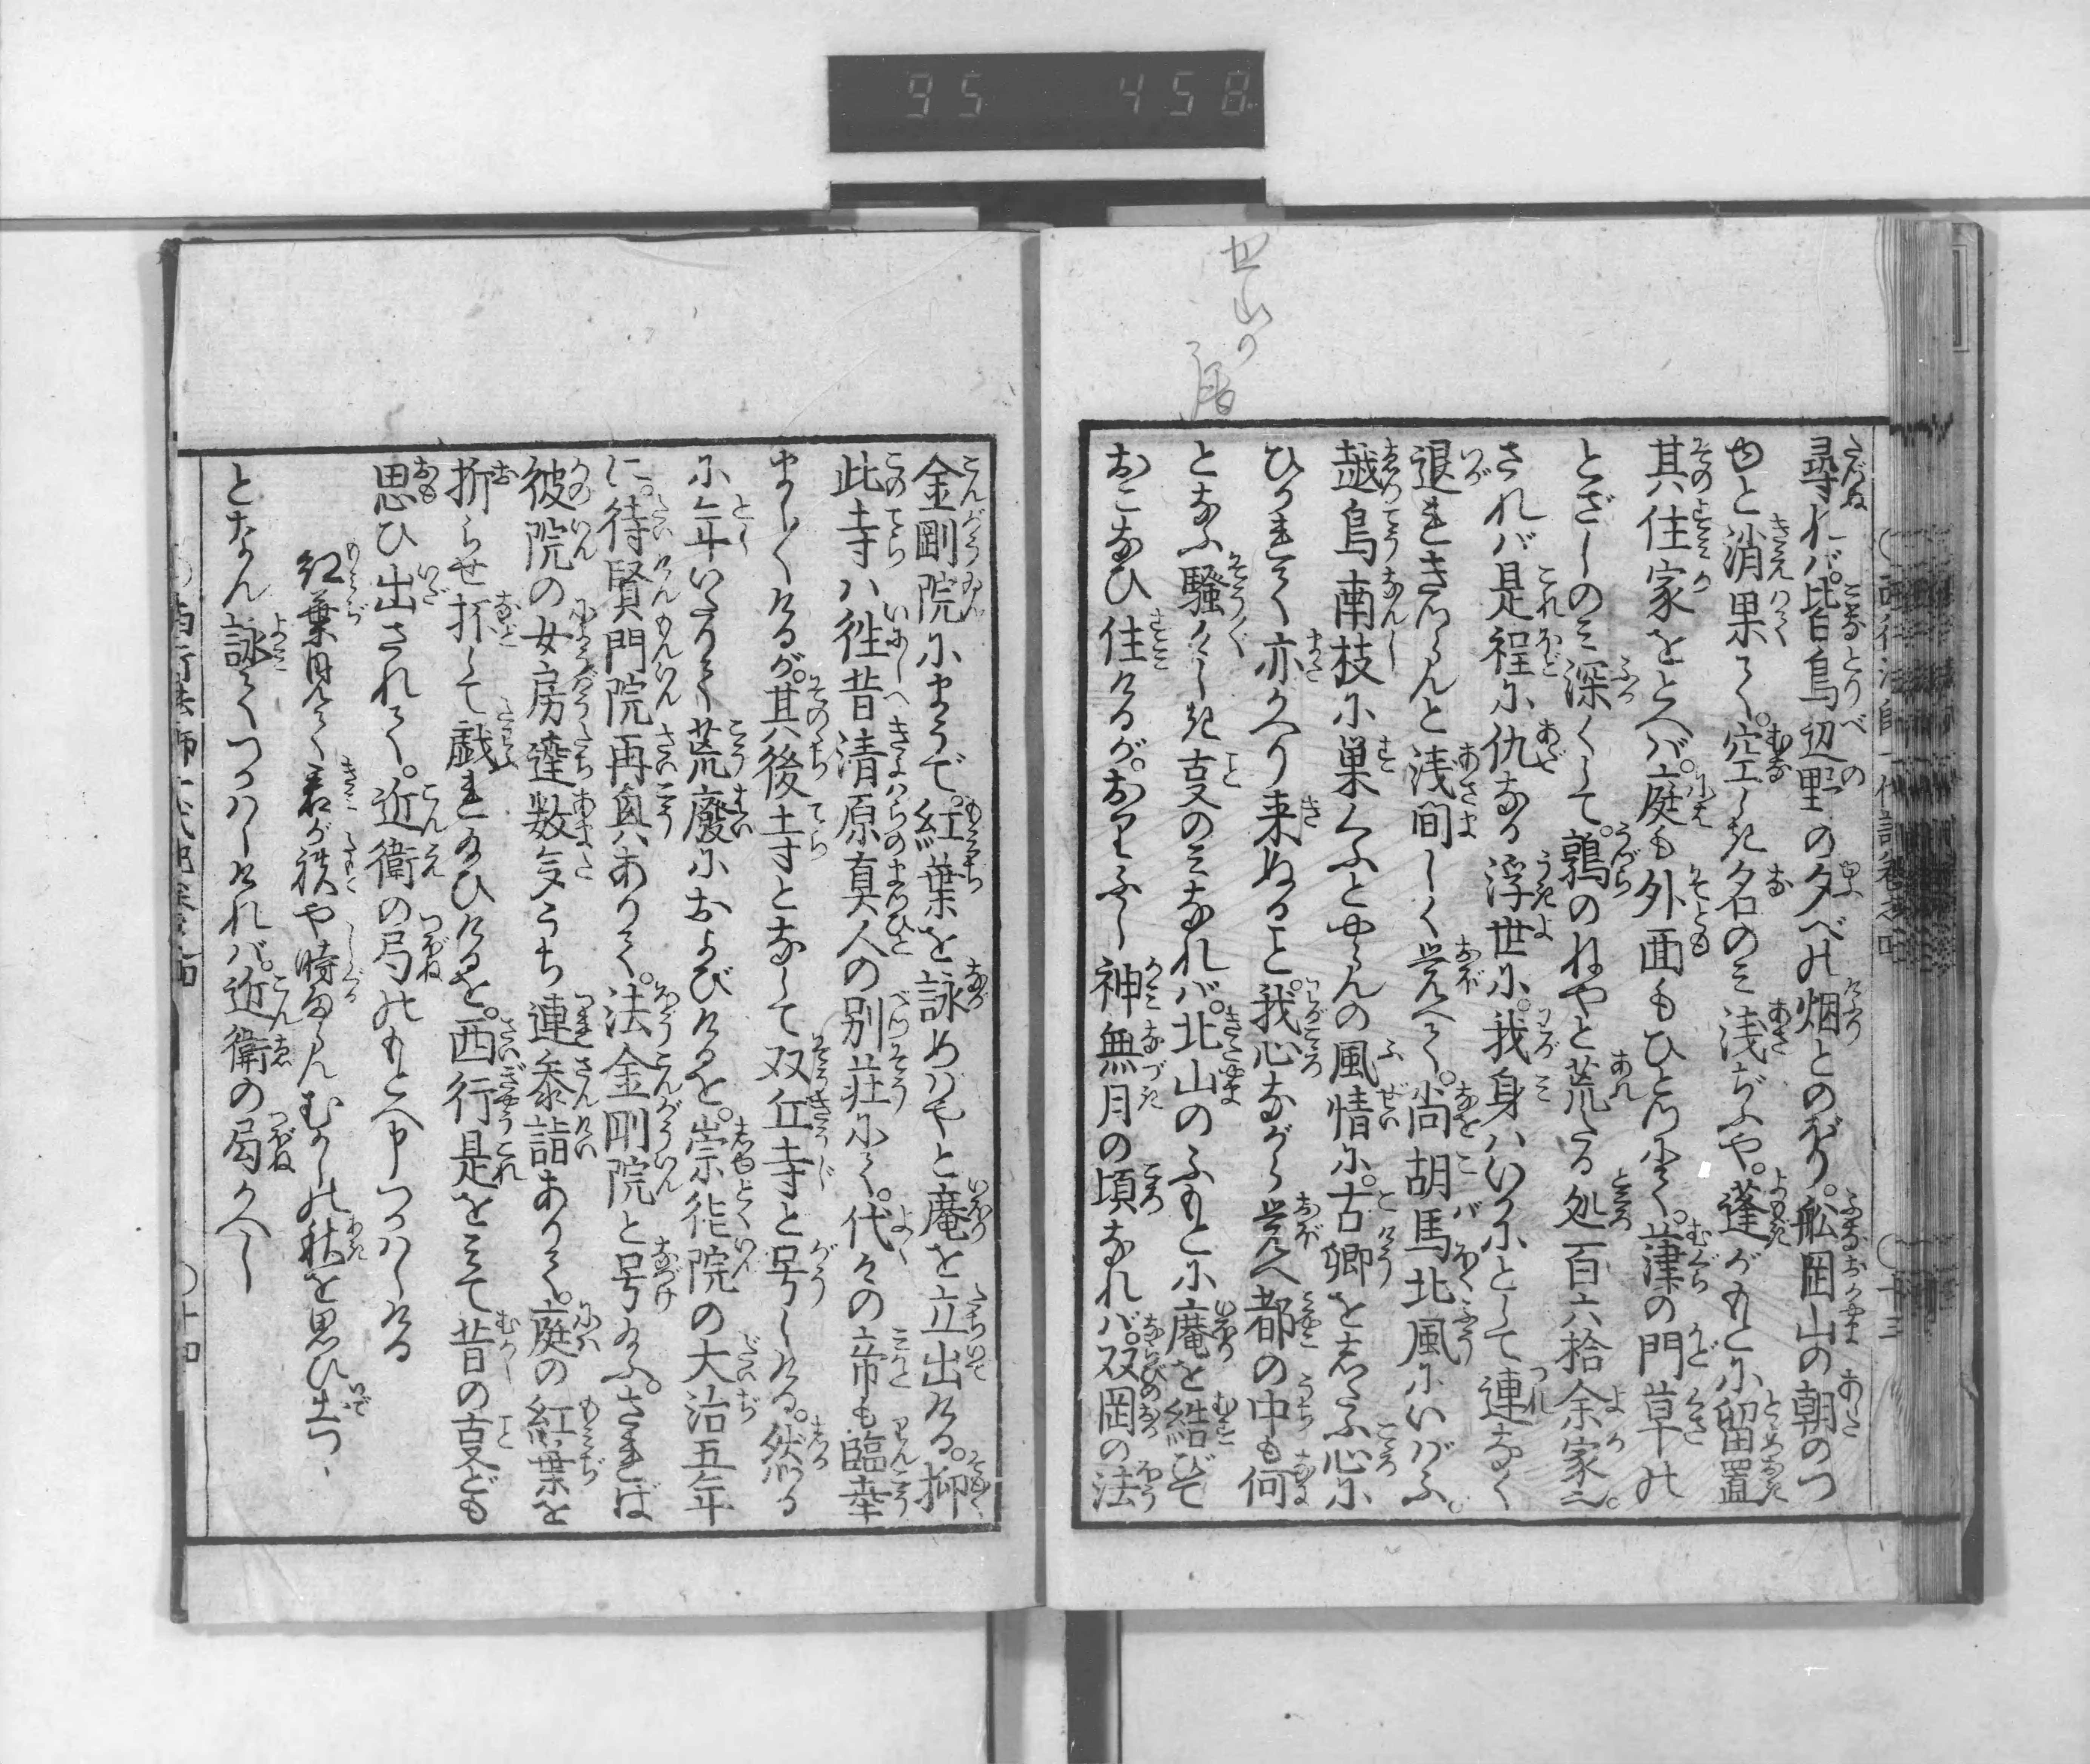 95 458
尋れバ。皆鳥辺野の夕べの烟とのぼり。舩岡山の朝のつ
ゆと消果て。空しき名のミ浅ぢふや。蓬がもとに留置
其住家をとへバ。庭も外面もひとつにて。葎の門草の
とざしのミ深くして。鶉のねやと荒たる処百六拾余家也。
されバ是程に仇なる浮世に。我身ハいかにとして連なく
退ききらんと浅間しく覚へて。尚胡馬北風にいばふ。
越鳥南枝に巣くふとやらんの風情に。古郷をしたふ心に
ひかされて亦かへり来ぬること。我心ながら覚へ都の中も何
となふ騒がしき事のミなれバ。北山のふもとに庵を結びて
おこなひ住けるが。おりふし神無月の頃なれバ。双岡の法
金剛院にまうで。紅葉を詠めバやと庵を立出ける。抑
此寺ハ徃昔清原真人の別荘にて。代々の帝も臨幸
ましくけるが。其後寺となして双丘寺と号しける。然る
に年いたりて荒廃におよびけるを。崇徳院の大治五年
に。待賢門院再興ありて。法金剛院と号給ふ。されば
彼院の女房達数多うち連参詣ありて。庭の紅葉を
折らせ抔して戯れ給ひけるを。西行是をミて昔の事ども
思ひ出されて。近衛の局のもとへ申つかハしける
紅葉見て君が袂や時雨らんむかしの秋を思ひ出つゝ
となん詠てつかハしけれバ。近衛の局かへし